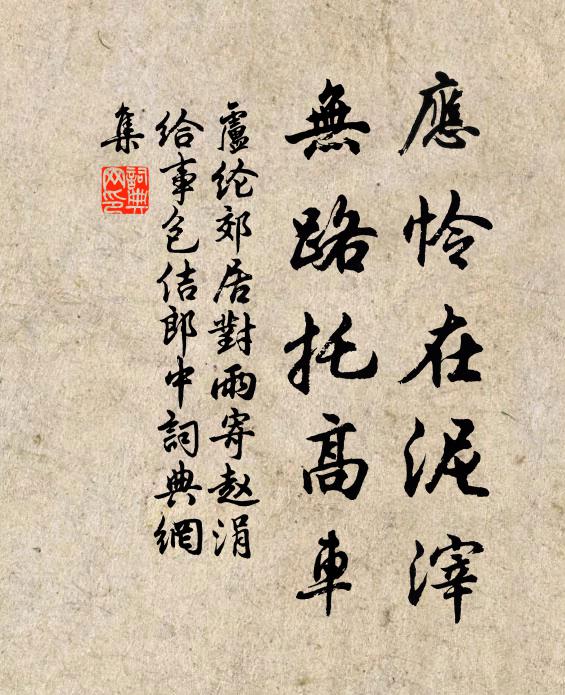 應怜在泥滓
無路托高車
盧纶郊居對雨寄赵涓
给事包佶郎中詞典網
集
詞典
网印